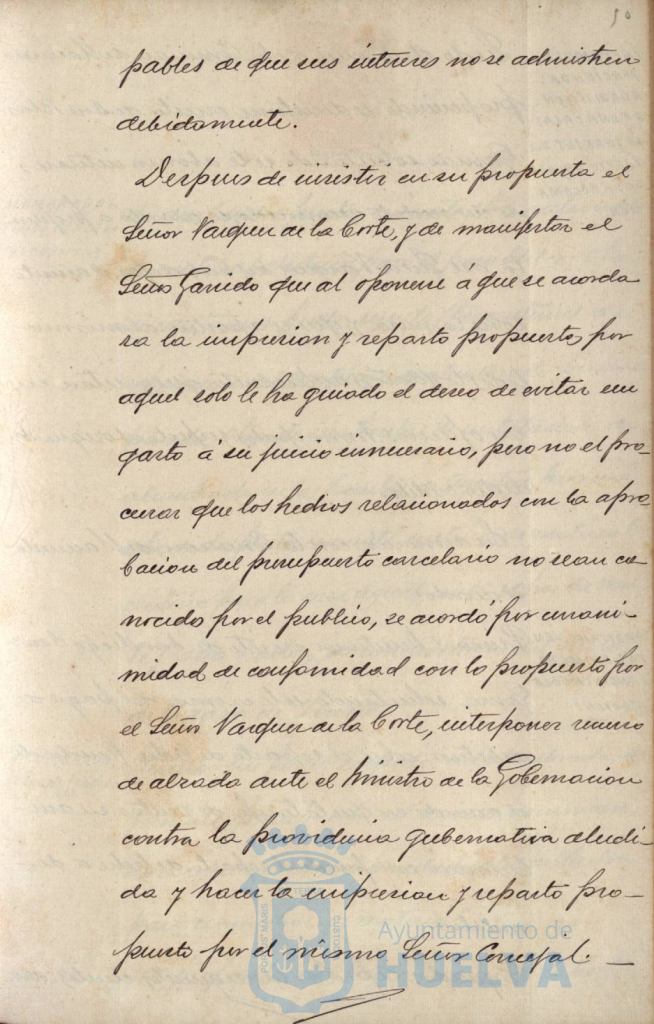 50
pables de que sus intereses no se administren
debidamente.
Despues de insistir en su propuesta el
Señor Vazquez de la Corte, y de manifestar el
Señor Garrido que al oponerse á que se acorda
ra la impresion y reparto propuesto, por
aquel solo le ha guiado el deseo de evitar un
gasto á su juicio innecesario, pero no el pro-
curar que los hechos relacionados con la apro-
bacion del presupuesto carcelario no sean co-
nocido por el publico, se acordó por unani-
midad de conformidad con lo propuesto por
el Señor Vazquez de la Corte, interponer recurso
de alzada ante el Ministro de la Gobernacion
contra la providencia gubernativa aludi-
da y hacer la impresion y reparto pro-
puesto por el mismo Señor Concejal. —
Ayuntamiento de
HUELVA